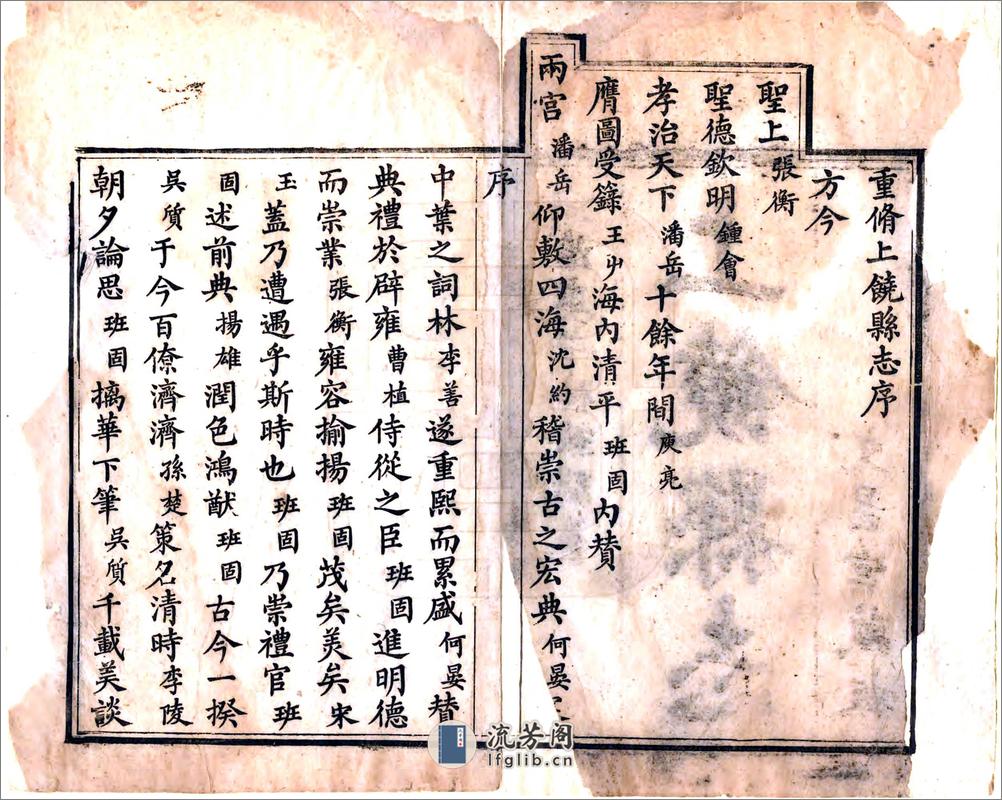 重脩上饒縣志序
方今
聖上張衡
聖德欽明鍾會
孝治天下潘岳十餘年間庾亮
膺圖受籙王屮海內清平班固內賛
兩宮潘岳仰敷四海沈約稽崇古之宏典何晏
序
中葉之詞林李善遂重熙而累盛何晏賛
典禮於辟雍曹植侍從之臣班固進明德
而崇業張衡雍容揄揚班固茂矣美矣宋
玉蓋乃遭遇乎斯時也班固乃崇禮官班
固述前典揚雄潤色鴻猷班固古今一揆
吳質于今百僚濟濟孫楚策名清時李陵
朝夕論思班固摛華下筆吳質千載美談
流芳阁
lfglib.cn